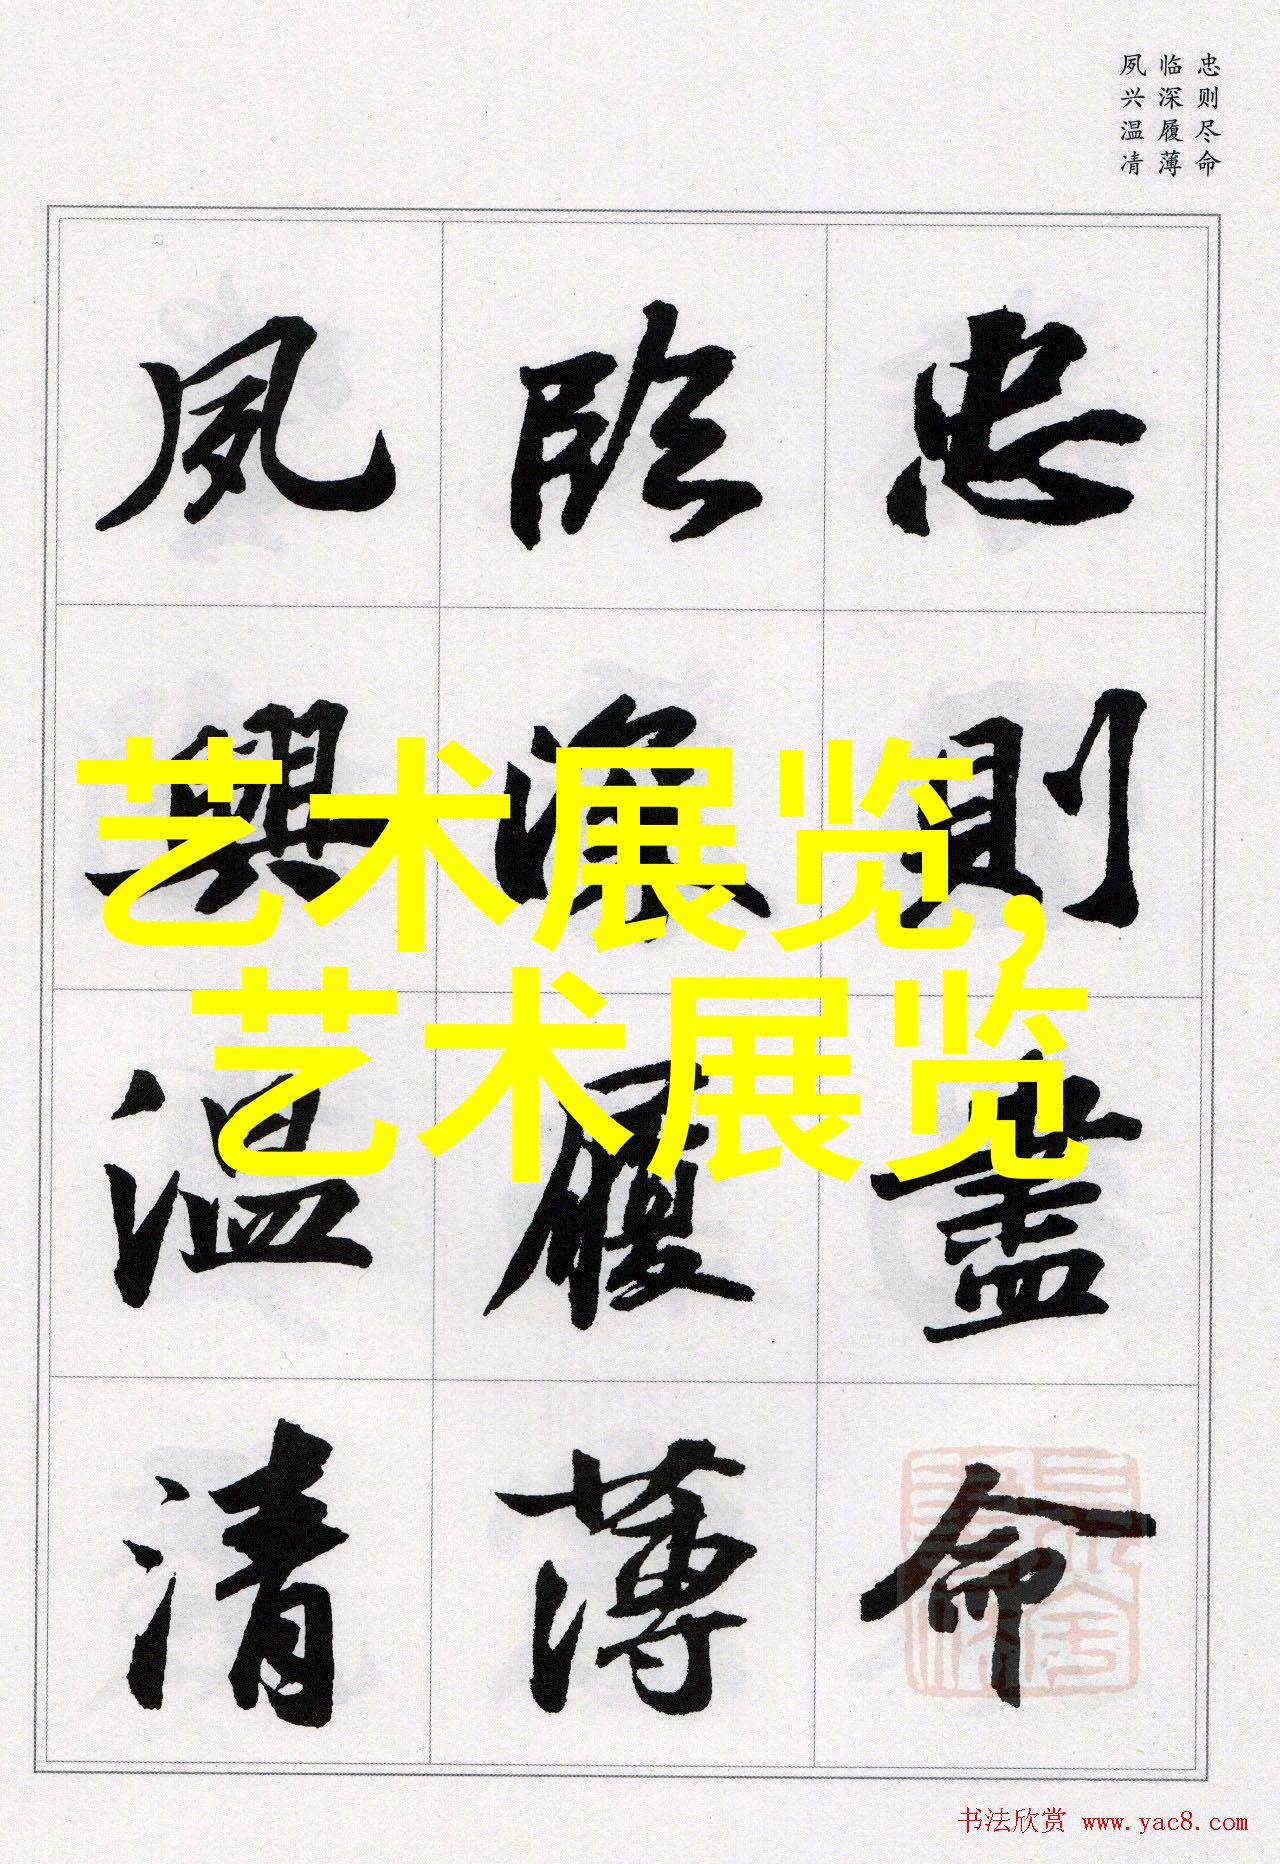 忠则尽命
临深履薄
夙兴温凊
忠則盡命
臨深履薄
夙興温清
艺术展览,
艺术展览
书法欣赏 www.yac8.com